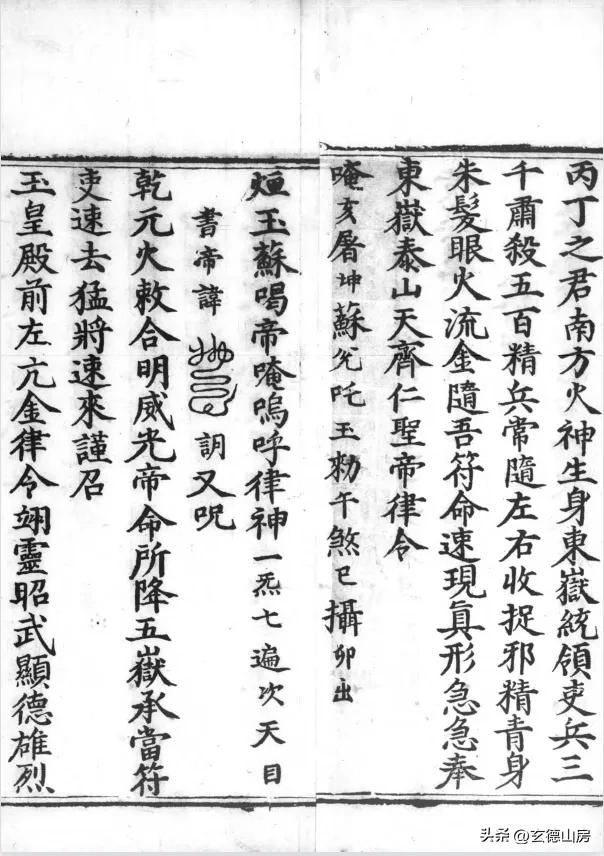 丙丁之君南方火神生身東嶽統領吏兵三
千肅殺五百精兵常隨左右收捉邪精青身
朱髮眼火流金隨吾符命速現真形急急奉
東嶽泰山天齊仁聖帝律令
唵亥屠坤蘇允吒玉勑午煞巳攝卯出
玉蘇喝帝唵嗚呼律神一炁七遍次天目
書帝諱 又呪
乾元火敕合明威光帝命所降五嶽承當符
吏速去猛將速來謹召
玉皇殿前左亢金律令翊靈昭武顯德雄烈
头条 @玄德山房